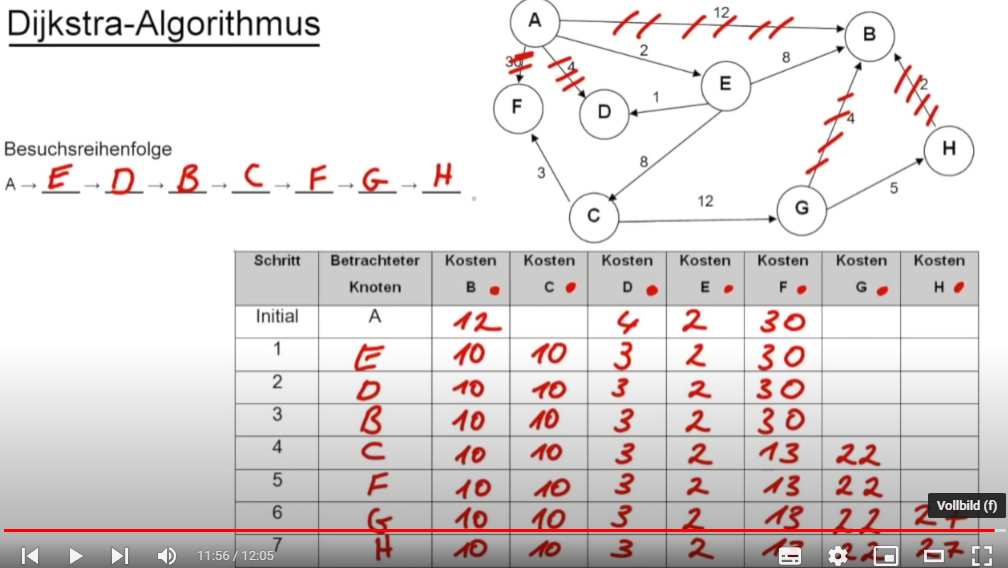 Dijkstra-Algorithmus
A
12
B
30
4
2
E
8
F
D
1
2
4
H
3
8
5
C
12
G
Besuchsreihenfolge
A → E → D → B → C → F → G → H
Schritt Betrachteter Knoten Kosten B Kosten C Kosten D Kosten E Kosten F Kosten G Kosten H
Initial A 12 4 2 30
1 E 10 10 3 2 30
2 D 10 10 3 2 30
3 B 10 10 3 2 30
4 C 10 10 3 2 13 22
5 F 10 10 3 2 13 22
Vollbild (f)
6 G 10 10 3 2 13 22 27
7 H 10 10 3 2 13 22 27
11:56 / 12:05